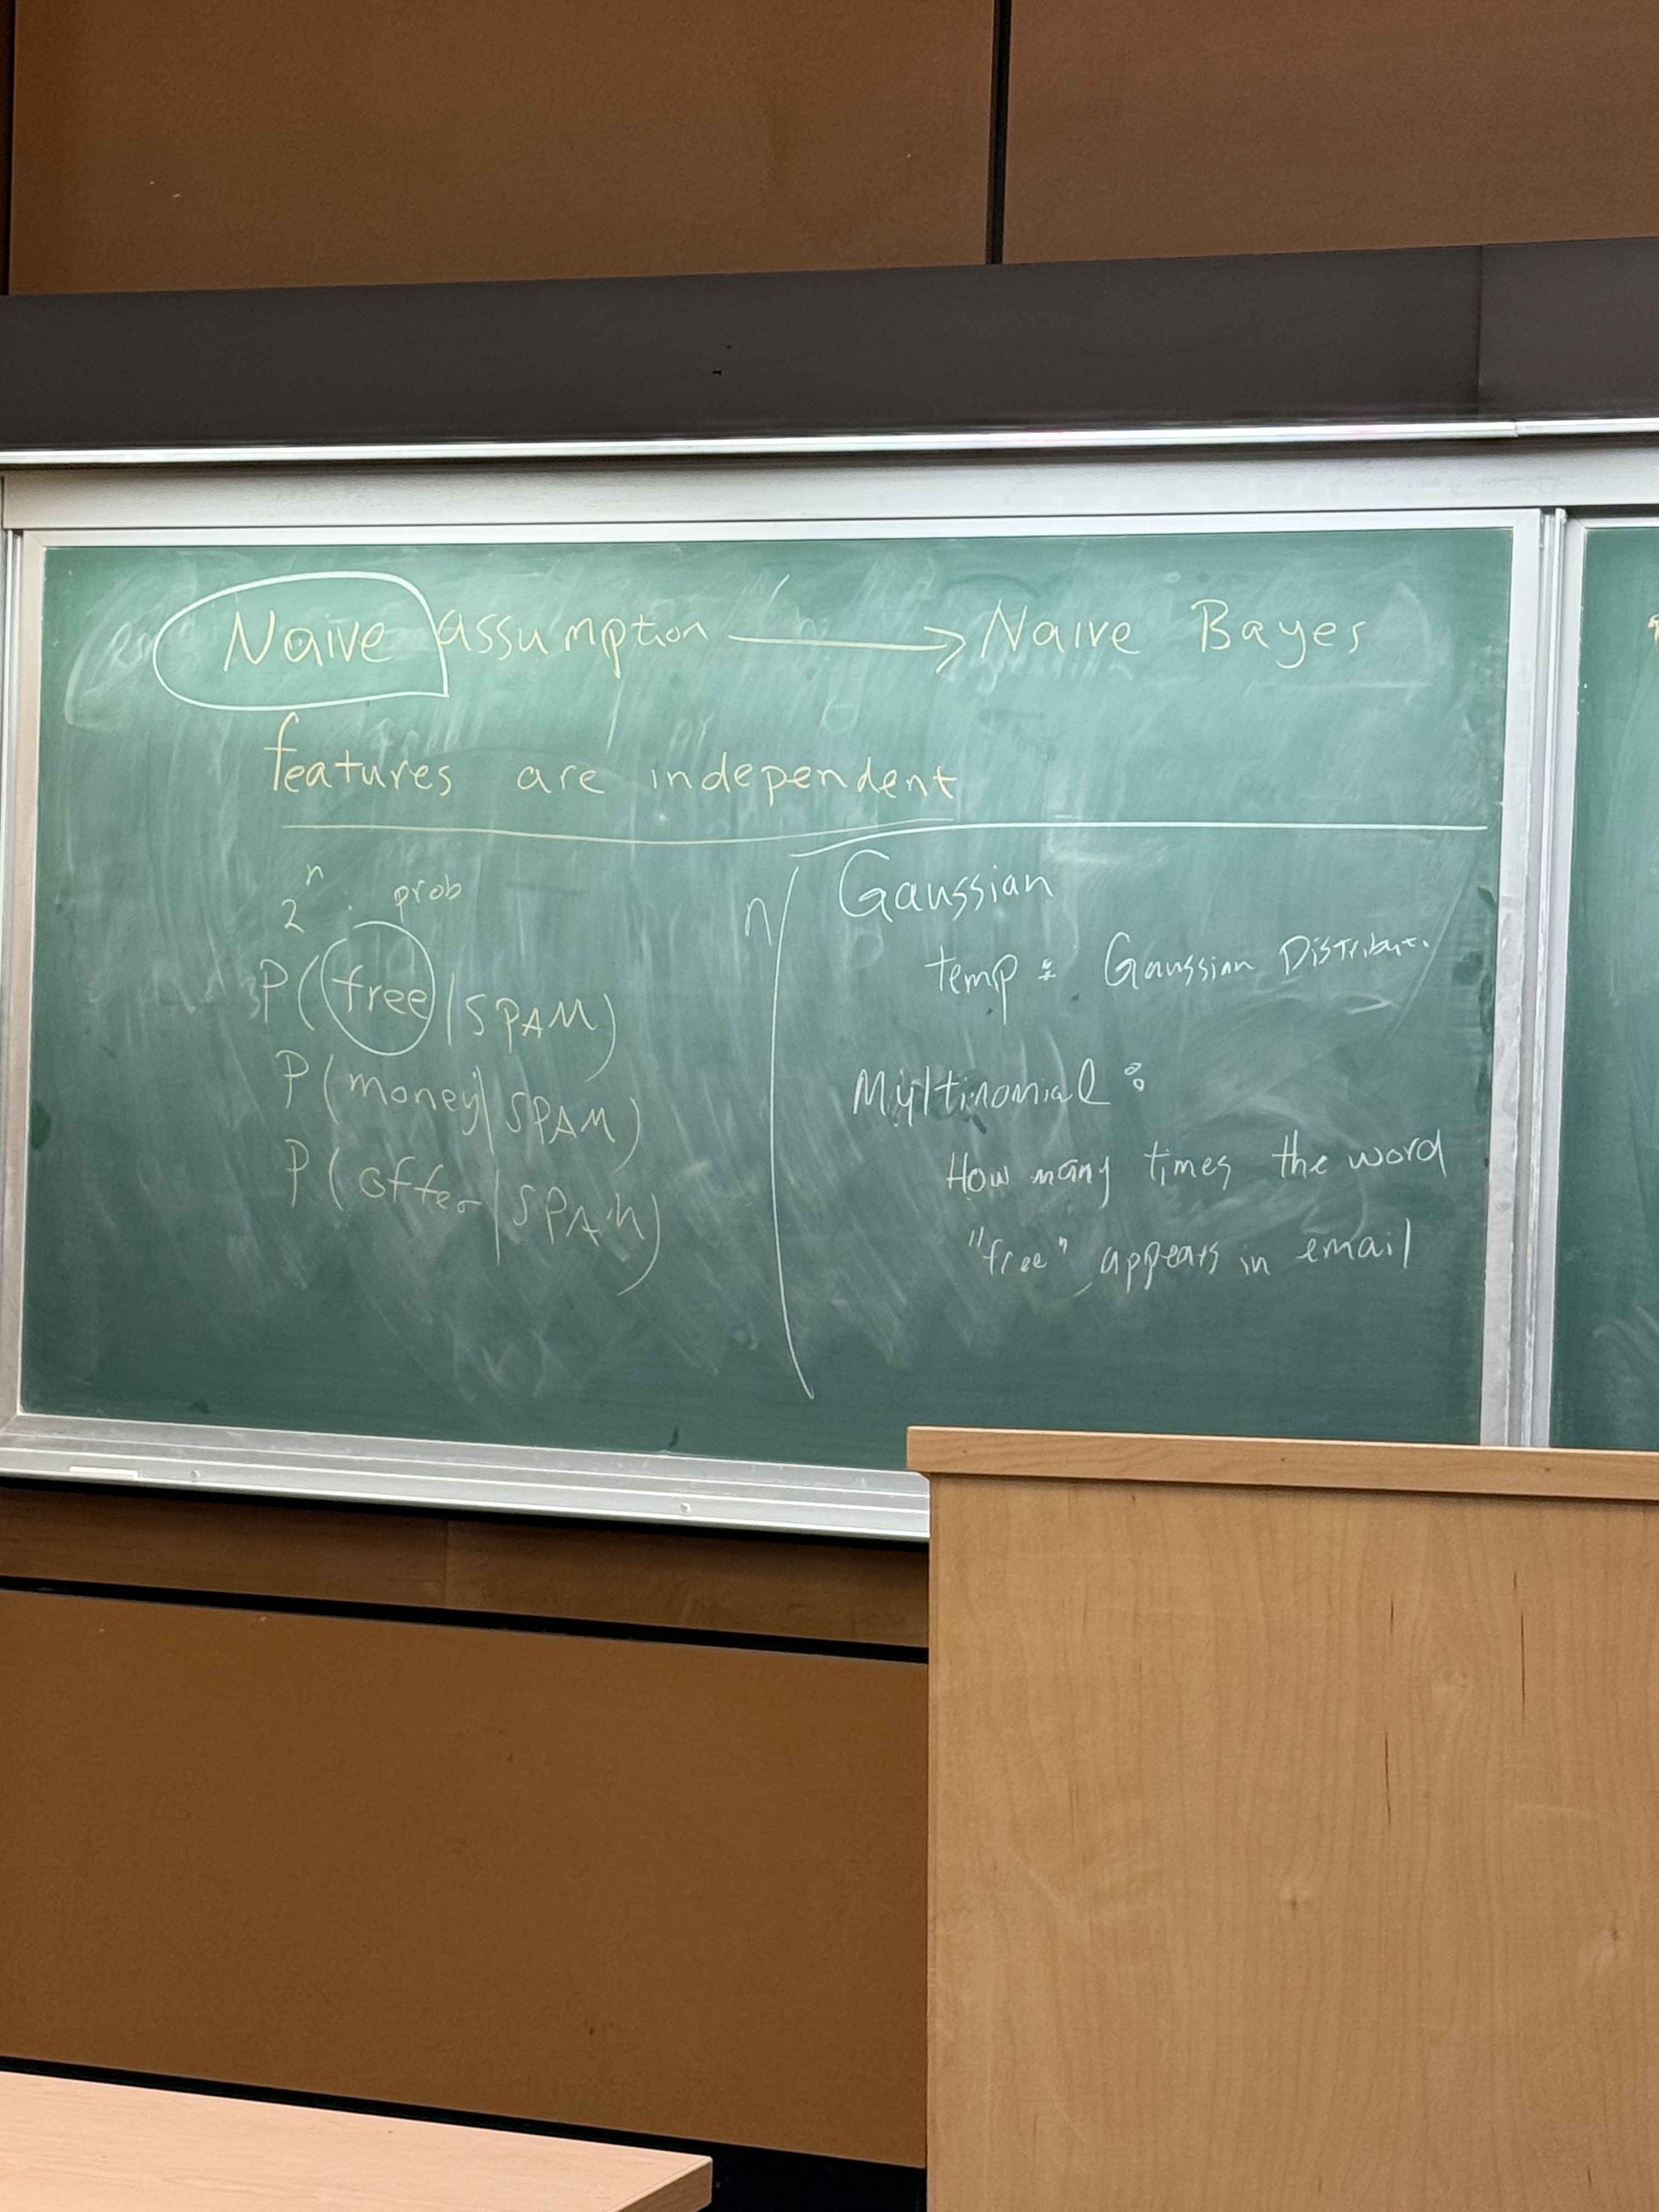 Naive assumption → Naive Bayes
features are independent
2^n prob
P(free|SPAM)
P(money|SPAM)
P(offer|SPAM)
n
Gaussian
temp : Gaussian Distribut.
Multinomial :
How many times the word
"free" appears in email